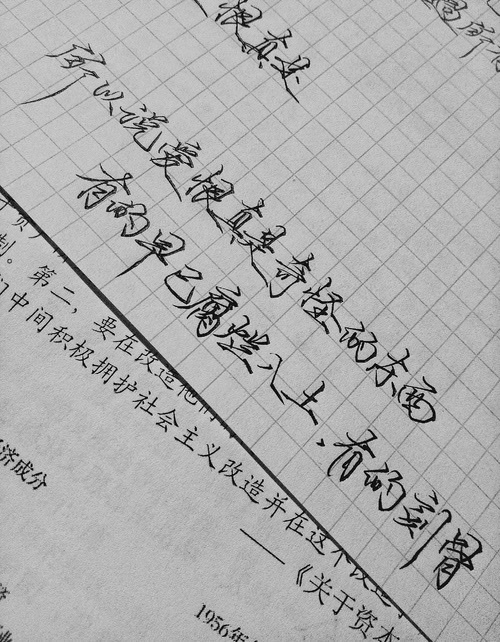 恨真是
所以说爱恨真是奇怪的东西
有的早已腐烂入土，有的刻骨
制。第二，要在改造他们
们中间积极拥护社会主义改造并在这个改造
——《关于资本
1956年
济成分